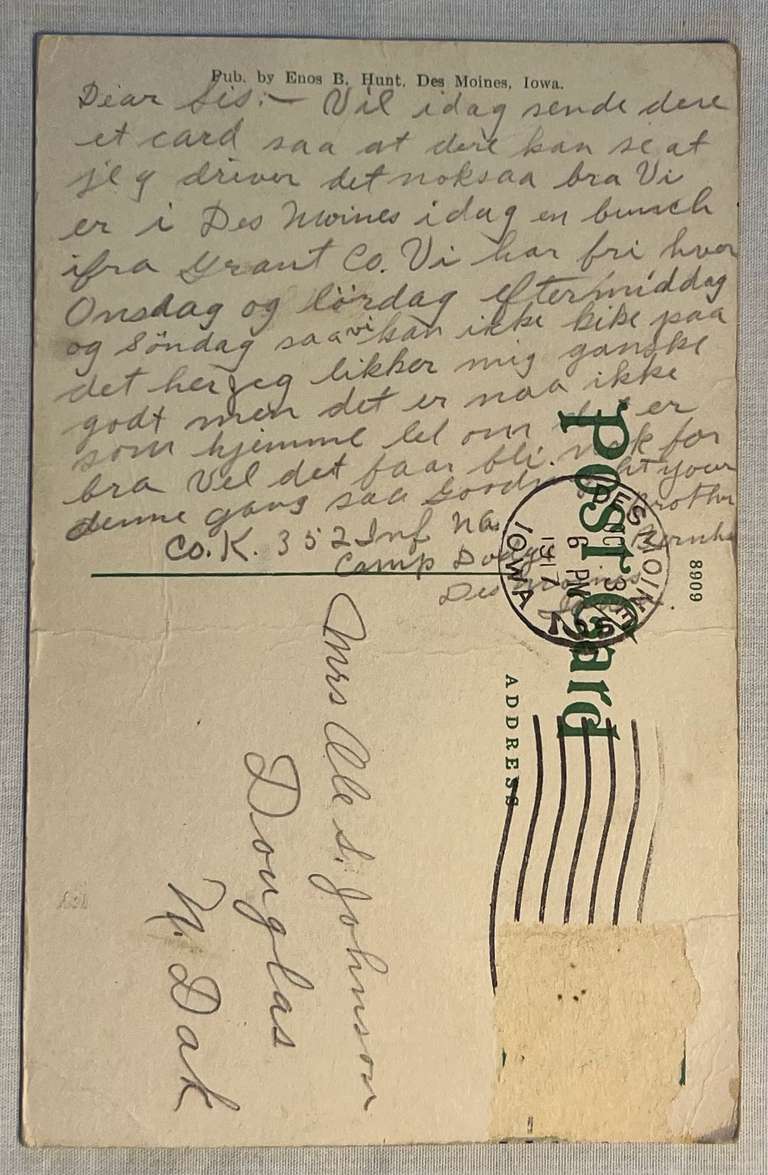 Pub. by Enos B. Hunt, Des Moines, Iowa.
Dear Sis:— Vil idag sende dere
et card saa at dere kan se at
jeg driver det noksaa bra Vi
er i Des Moines idag en bunch
ifra Grant Co. Vi har fri hver
Onsdag og lördag eftermiddag
og Söndag saa vi kan ikke kike paa
det her jeg likker mig ganske
godt men det er naa ikke
som hjemme let om det er
bra Vel det faar bli nok for
denne gang saa Goodnight your
Brother
Co. K. 352 Inf Na.
Camp Dodge
Des Moines
Iowa
Post Card
8909
ADDRESS
DES MOINES
OCT 3
6 PM
1917
IOWA
Mrs Ole S. Johnson
Douglas
N. Dak